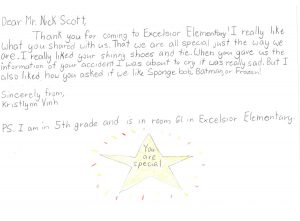 Dear Mr. Nick Scott,
Thank you for coming to Excelsior Elementary! I really like
what you shared with us. That we are all special just the way we
are. I really liked your shiny shoes and tie. When you gave us the
information of your accident I was about to cry it was really sad. But I
also liked how you asked if we like Sponge bob, Batman, or Frozen!
Sincerely from,
Kristlynn Vinh
PS. I am in 5th grade and is in room 61 in Excelsior Elementary.
You
are
special